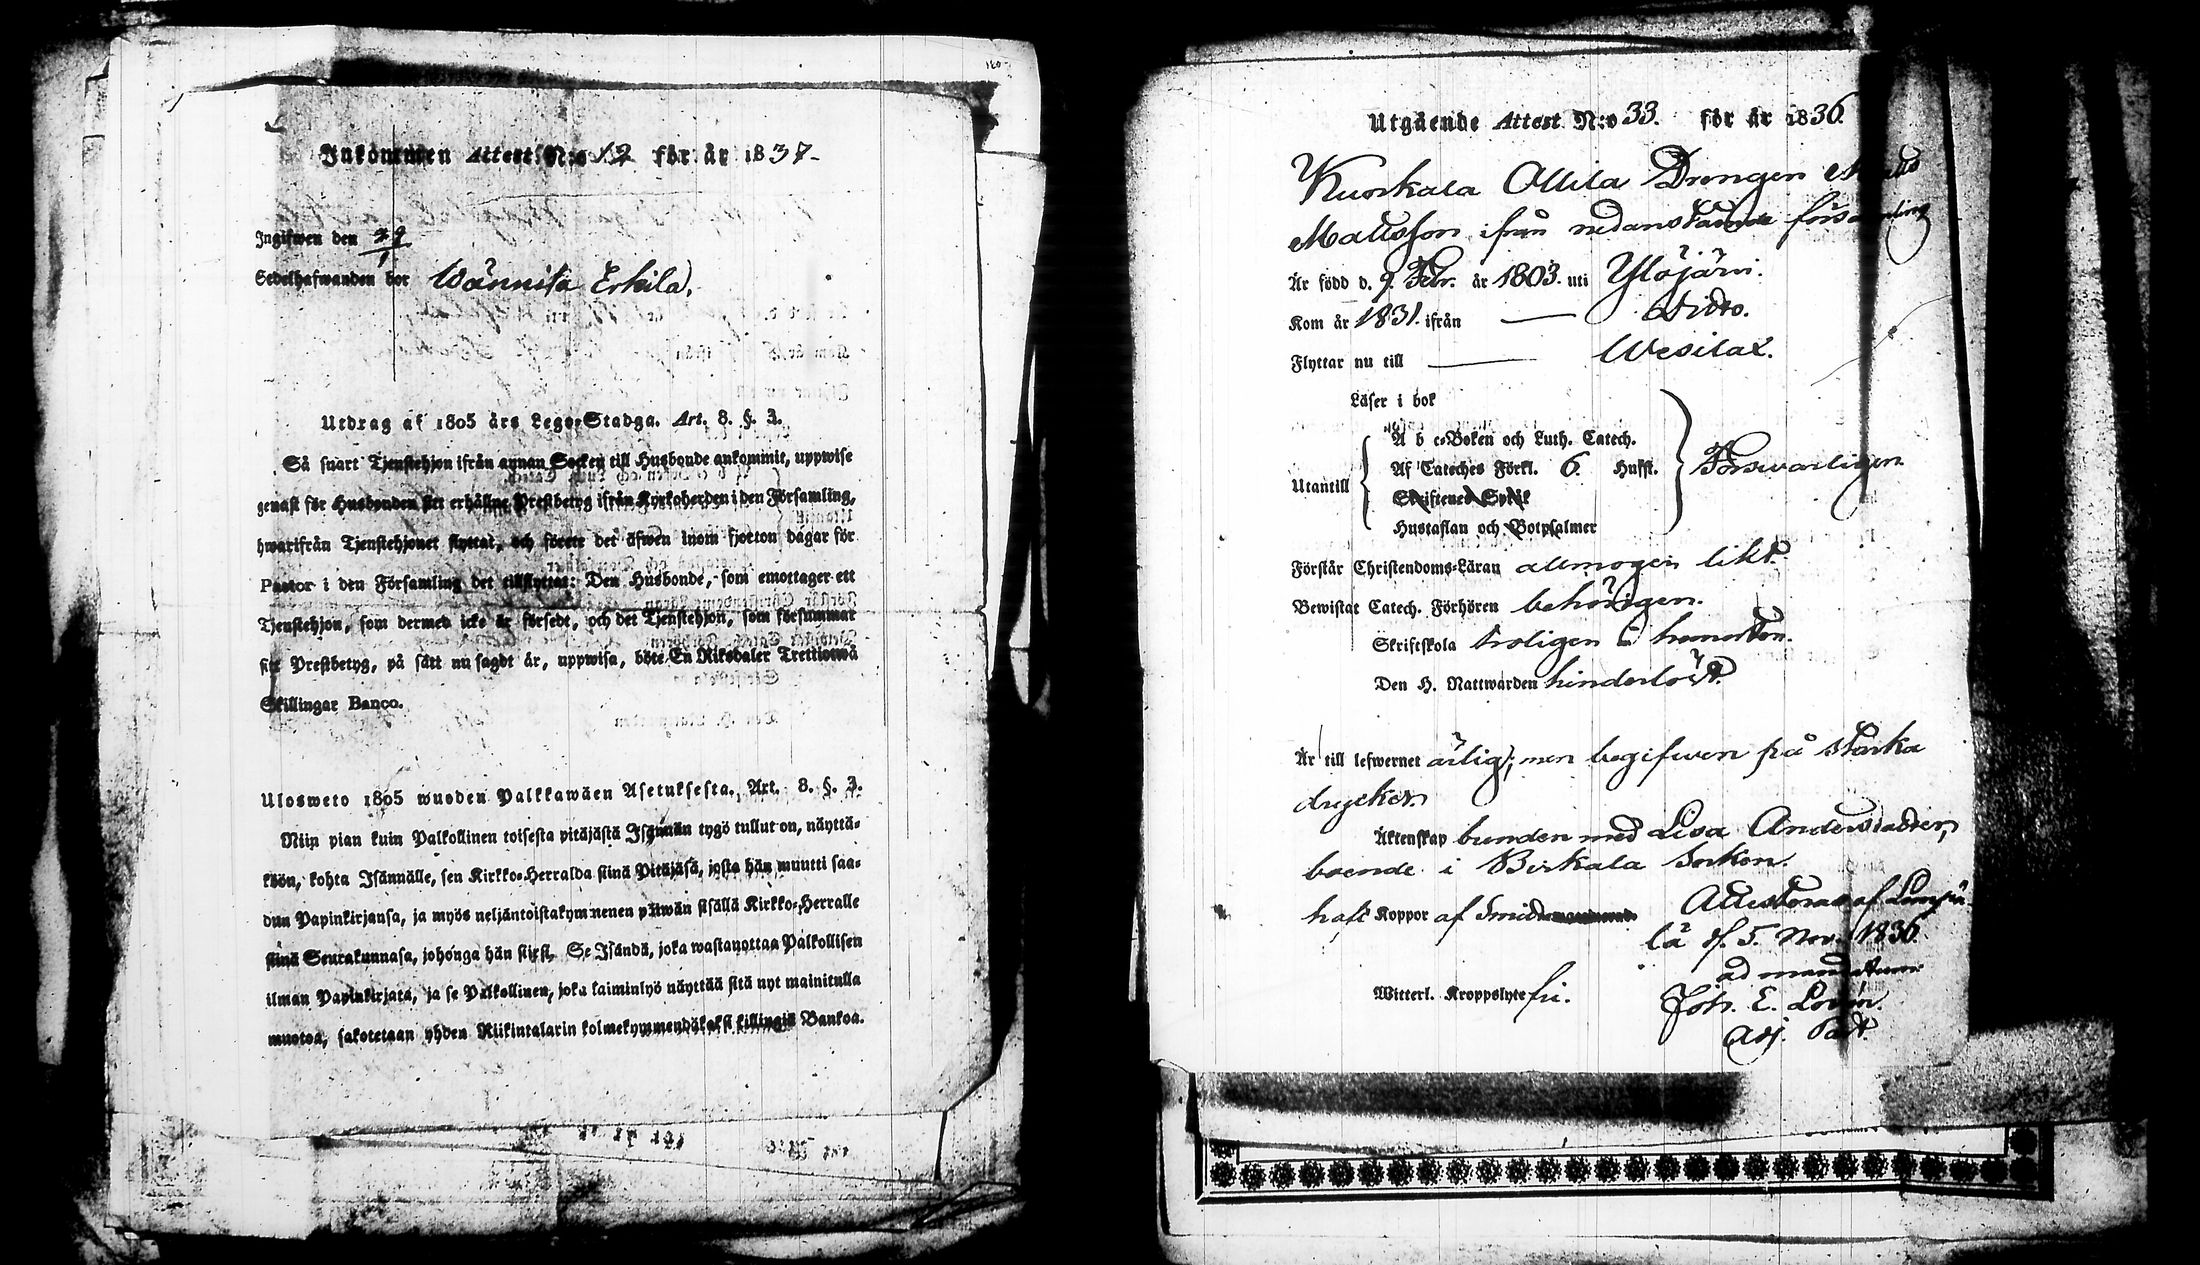 160
Inkommen Attest N:o 12 för år 1837-
Ingifwen den 29/1
Sedelhafwanden bor Wännilä Erkilä.
Utdrag af 1805 års Lego-Stadga. Art. 8. §. 3.
Så snart Tjenstehjon ifrån annan Socken till Husbonde ankommit, uppwise
genast för Husbonden sitt erhållne Prestbetyg ifrån Kyrkoherden i den Församling,
hwarifrån Tjenstehjonet flyttat, och förete det äfwen inom fjorton dagar för
Pastor i den Församling det tillflyttat: Den Husbonde, som emottager ett
Tjenstehjon, som dermed icke är försedt, och det Tjenstehjon, som försummar
sitt Prestbetyg, på sätt nu sagdt är, uppwisa, böte En Riksdaler Trettiotwå
Skillingar Banco.
Ulosweto 1805 wuoden Palkkawäen Asetuksesta. Art. 8. §. 3.
Niin pian kuin Palkollinen toisesta pitäjästä Isännän tygö tullut on, näyttä-
köön, kohta Isännälle, sen Kirkko-Herralda siinä Pitäjäsä, josta hän muutti saa-
dun Papinkirjansa, ja myös neljäntoistakymmenen päiwän sisällä Kirkko-Herralle
siinä Seurakunnasa, johonga hän siirsi. Se Isändä, joka wastaanottaa Palkollisen
ilman Papinkirjata, ja se Palkollinen, joka laiminlyö näyttää sitä nyt mainitulla
muotoa, sakotetaan yhden Riikintalarin kolmekymmendäkaksi killingiä Bankoa.
Utgående Attest N:o 33. för år 1836.
Kurkala Ollila Drengen
Mattsson ifrån nedanstående församling
Är född d. 9. Febr. år 1803. uti Ylöjärvi.
Kom år 1831. ifrån — Dido.
Flyttar nu till — Wesilax.
Läser i bok
Utantill
A b c-Boken och Luth. Catech.
Af Cateches Förkl. 6. Hufst.
Skriftenes Språk
Hustaflan och Botpsalmer
Förswarligen
Förstår Christendoms-Läran allmogen likt.
Bewistat Catech. Förhören behörigen.
Skriftskola troligen i hemorten.
Den H. Nattwarden hinderlöst.
Är till lefwernet ärlig; men begifwen på starka
drycker
Äktenskap bunden med Lisa Andersdotter,
boende i Birkala Socken.
haft Koppor af Smitt
Attesteras af
lä d. 5. Nov. 1836.
ad mandatum
Witterl. Kroppslyte fri.
Joh. E.
Adj. Past.